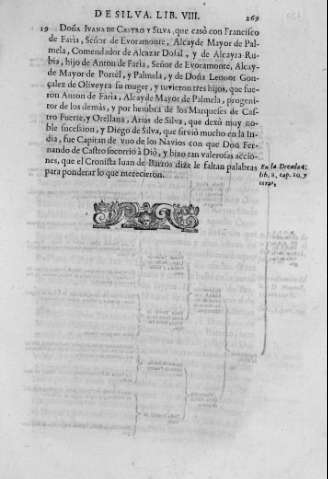 DE SILVA. LIB. VIII. 269
19 Doña IVANA DE CASTRO Y SILVA, que casò con Francisco
de Faria, Señor de Evoramonte, Alcayde Mayor de Pal-
mela, Comendador de Alcazar Dosal, y de Alcayra Ru-
bia, hijo de Anton de Faria, Señor de Evoramonte, Alcay-
de Mayor de Portél, y Palmela, y de Doña Leonor Gon-
çalez de Oliveyra su muger, y tuvieron tres hijos, que fue-
ron Anton de Faria, Alcayde Mayor de Palmela, progeni-
tor de los demás, y por hembra de los Marqueses de Cas-
tro Fuerte, y Orellana, Arias de Silva, que dexó muy no-
ble sucession, y Diego de Silva, que sirvió mucho en la In-
dia, fue Capitan de vno de los Navios con que Don Fer-
nando de Castro socorrió à Diò, y hizo tan valerosas accio-
nes, que el Cronista Iuan de Barros dize le faltan palabras
para ponderar lo que merecieron.
En la Decada 6.
lib. 2. cap. 10. y